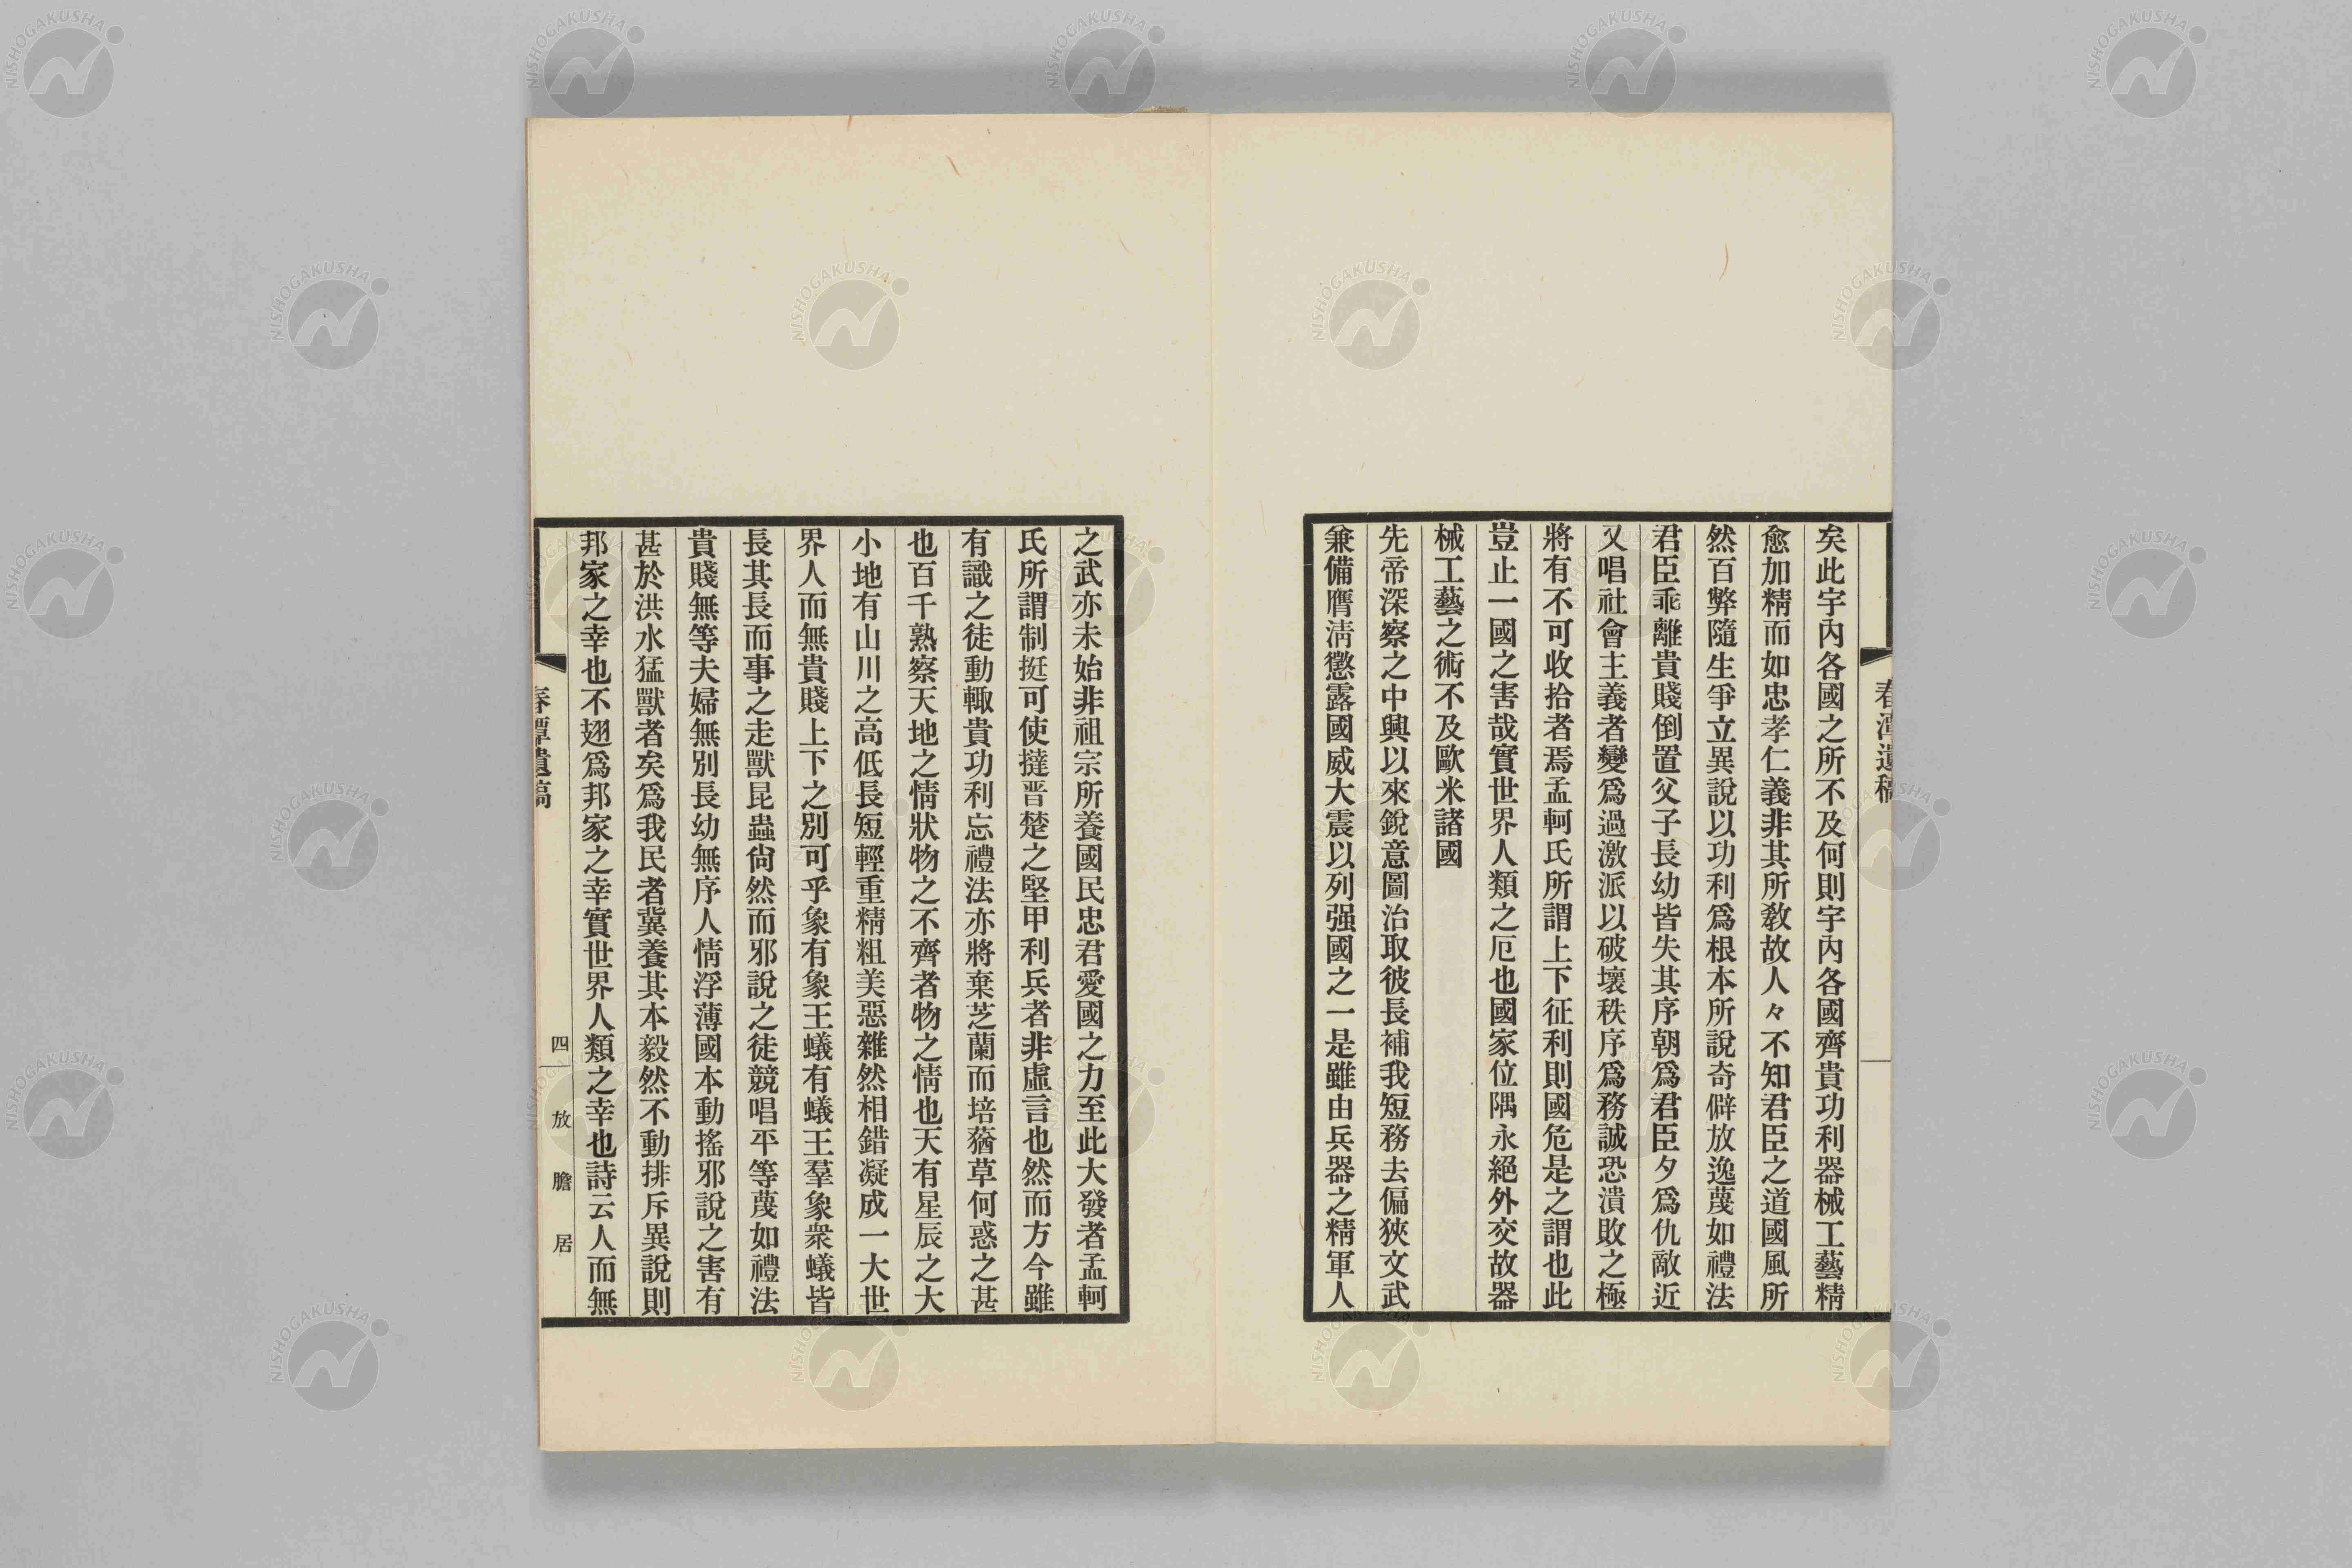 春潭遺稿
矣此宇內各國之所不及何則宇內各國齊貴功利器械工藝精
愈加精而如忠孝仁義非其所敎故人々不知君臣之道國風所
然百弊隨生爭立異說以功利爲根本所說奇僻放逸蔑如禮法
君臣乖離貴賤倒置父子長幼皆失其序朝爲君臣夕爲仇敵近
又唱社會主義者變爲過激派以破壞秩序爲務誠恐潰敗之極
將有不可收拾者焉孟軻氏所謂上下征利則國危是之謂也此
豈止一國之害哉實世界人類之厄也國家位隅永絕外交故器
械工藝之術不及歐米諸國
先帝深察之中興以來銳意圖治取彼長補我短務去偏狹文武
兼備膺淸懲露國威大震以列强國之一是雖由兵器之精軍人
之武亦未始非祖宗所養國民忠君愛國之力至此大發者孟軻
氏所謂制挺可使撻晋楚之堅甲利兵者非虛言也然而方今雖
有識之徒動輙貴功利忘禮法亦將棄芝蘭而培蕕草何惑之甚
也百千熟察天地之情狀物之不齊者物之情也天有星辰之大
小地有山川之高低長短輕重精粗美惡雜然相錯凝成一大世
界人而無貴賤上下之別可乎象有象王蟻有蟻王羣象衆蟻皆
長其長而事之走獸昆蟲尙然而邪說之徒競唱平等蔑如禮法
貴賤無等夫婦無別長幼無序人情浮薄國本動搖邪說之害有
甚於洪水猛獸者矣爲我民者冀養其本毅然不動排斥異說則
邦家之幸也不翅爲邦家之幸實世界人類之幸也詩云人而無
春潭遺稿
四
放膽居
NISHOGAKUSHA